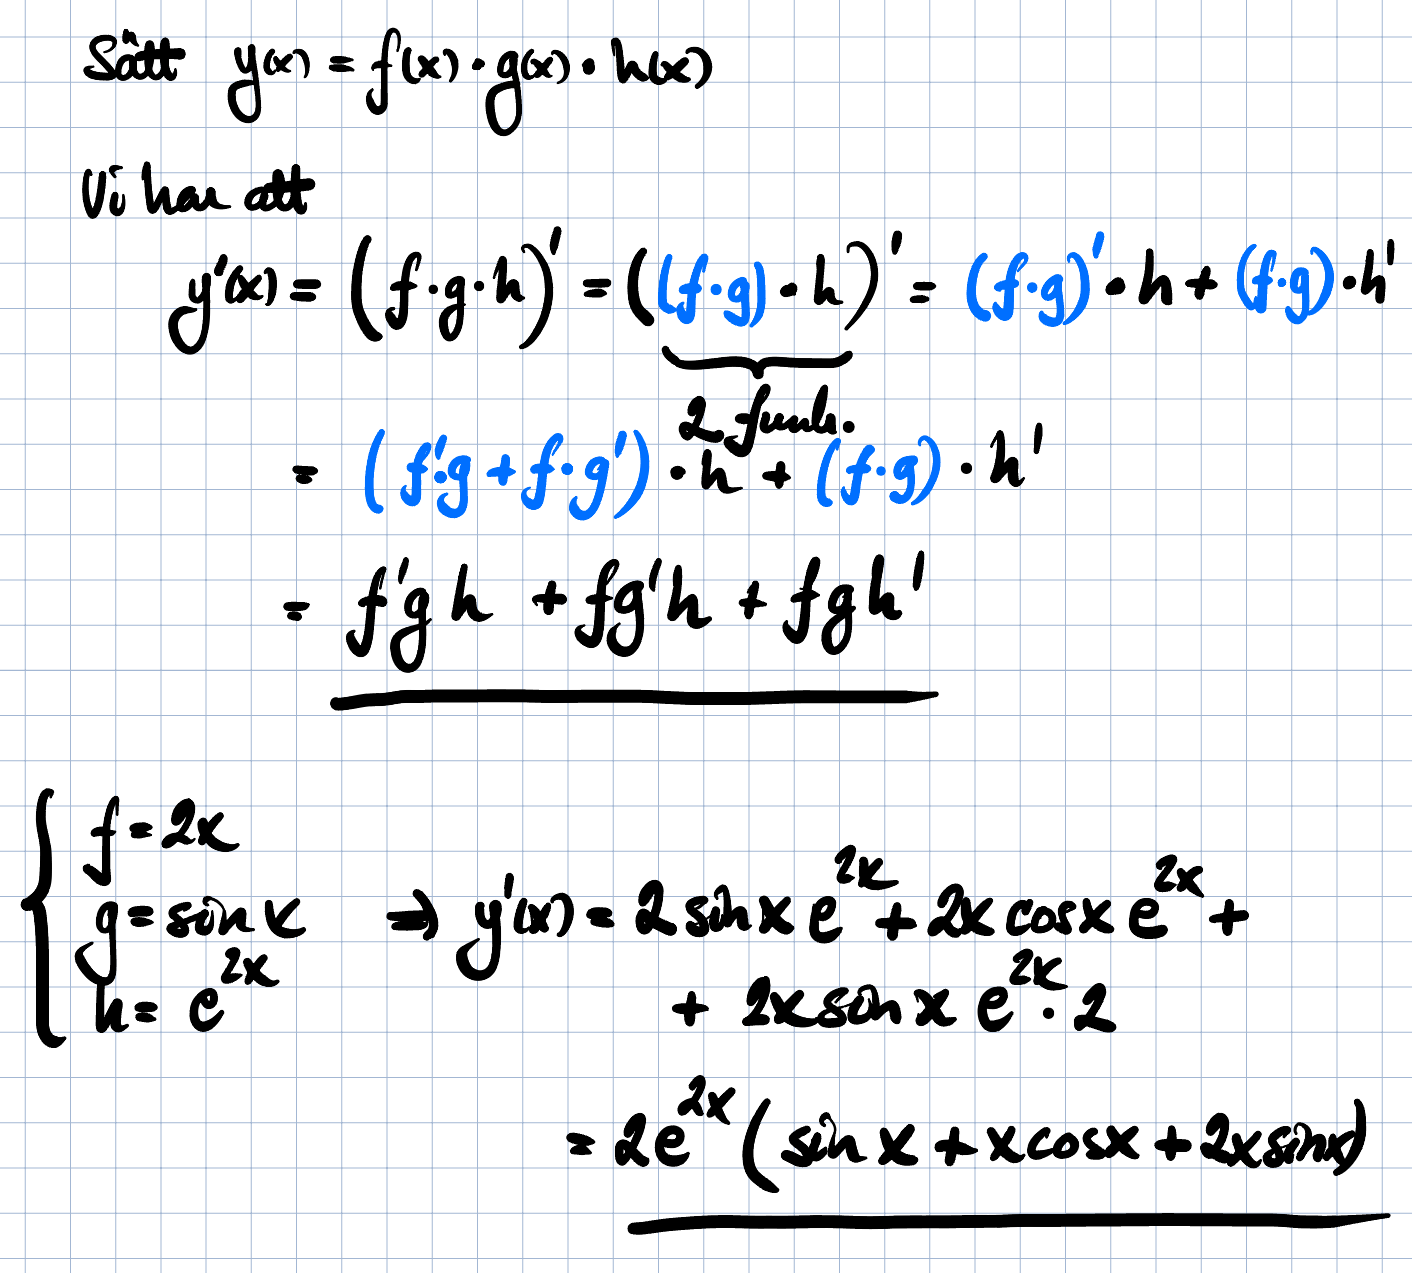 Sätt y(x) = f(x) · g(x) · h(x)
Vi har att
y'(x) = (f·g·h)' = ((f·g)·h)' = (f·g)'·h + (f·g)·h'
2 funk.
= (f'·g + f·g')·h + (f·g)·h'
= f'gh + fg'h + fgh'
f = 2x
g = sin x ⇒ y'(x) = 2 sin x e^{2x} + 2x cos x e^{2x} +
h = e^{2x} + 2x sin x e^{2x}·2
= 2e^{2x} (sin x + x cos x + 2x sin x)